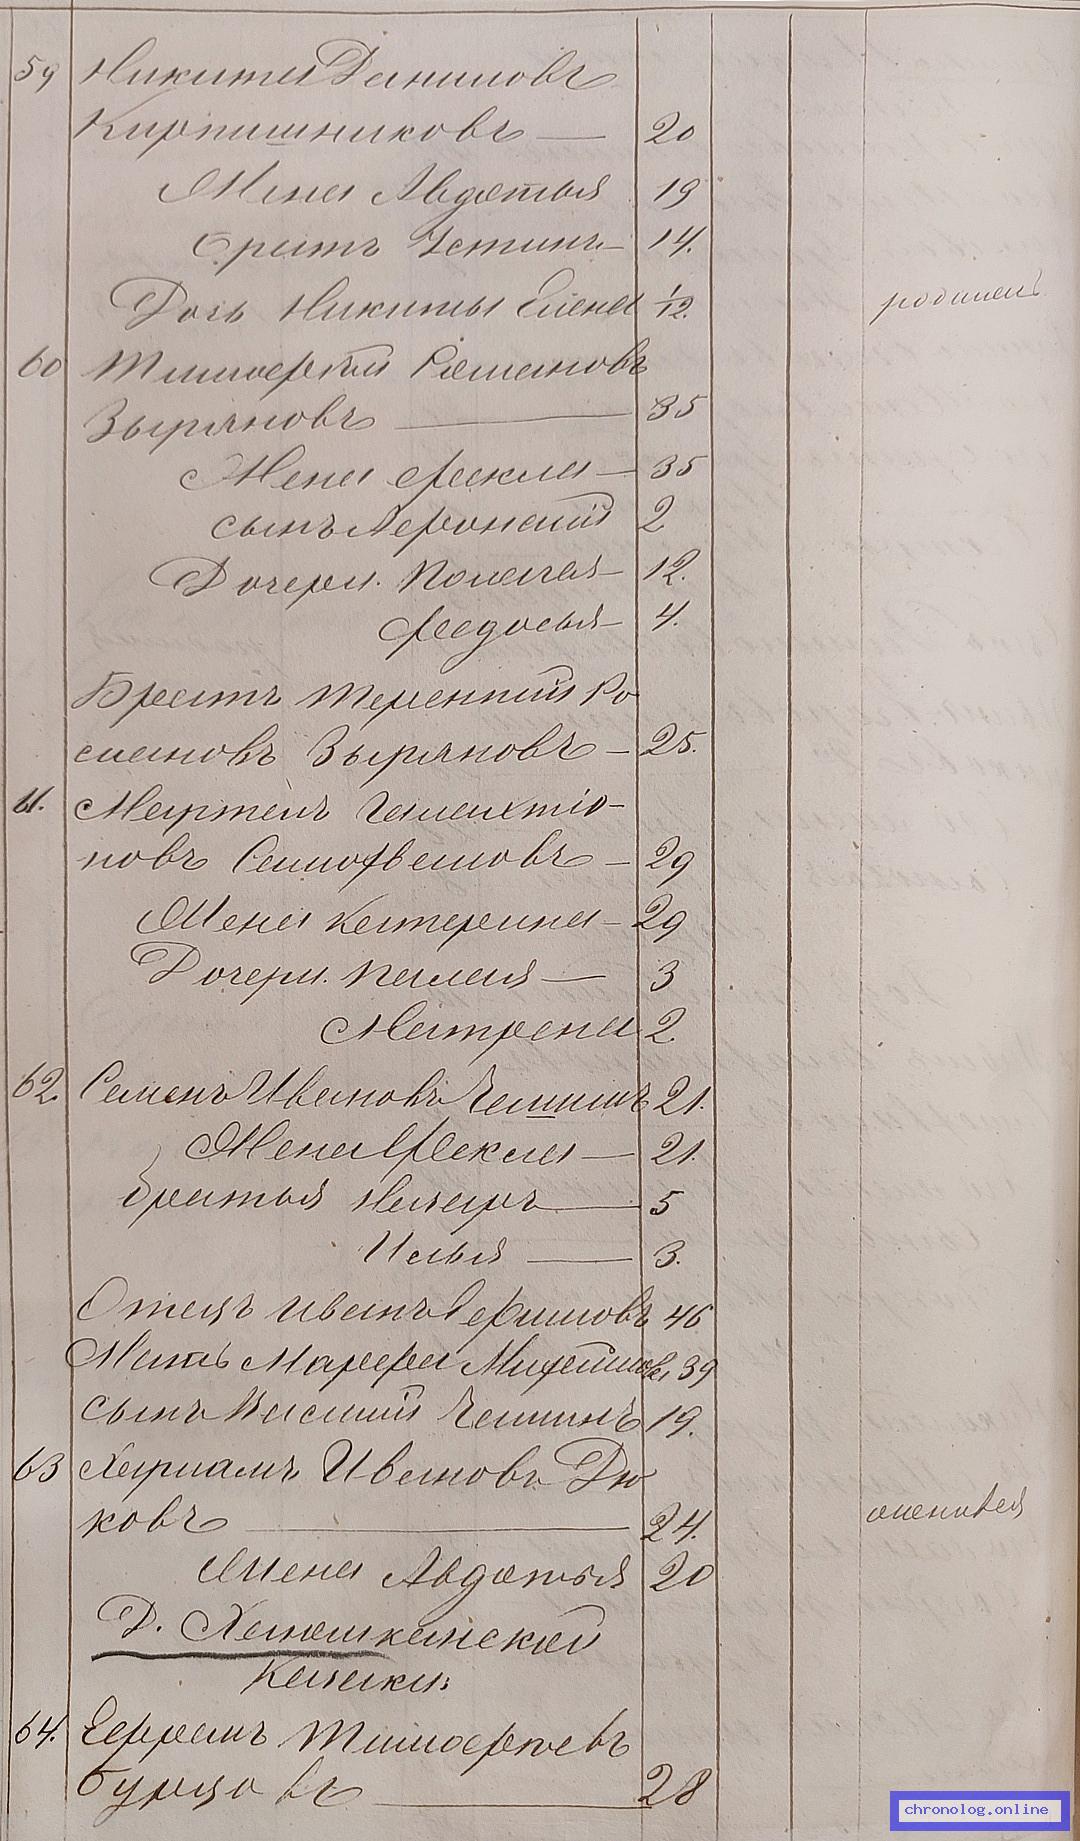 59 Никита Даниловъ
Кирпишниковъ — 20
Жена Авдотья 19
Братъ Устинъ — 14.
Дочь Никиты Елена 1/12. родилась
60 Тимофей Рамановъ
Зыряновъ — 35
Жена Фекла — 35
сынъ Афонасий 2
Дочери. Полагея — 12.
Феодосья — 4.
Братъ Терентий Ро
мановъ Зыряновъ — 25.
61. Мартенъ Галахтіо-
новъ Самофаловъ — 29
Жена Катерина — 29
Дочери. Палагея — 3
Матрена 2
62. Семенъ Ивановъ Чашинъ 21.
Жена Фекла — 21.
братья Назаръ — 5
Илья — 3.
Отецъ Иванъ 46
Мать Марфа 39
сынъ Василий Чашинъ 19.
63 Харламъ Ивановъ Дю
ковъ — 24. женился
Жена Авдотья 20
Д.
Казаки:
64. Ефремъ Тимофеевъ
бурцовъ — 28
chronolog.online